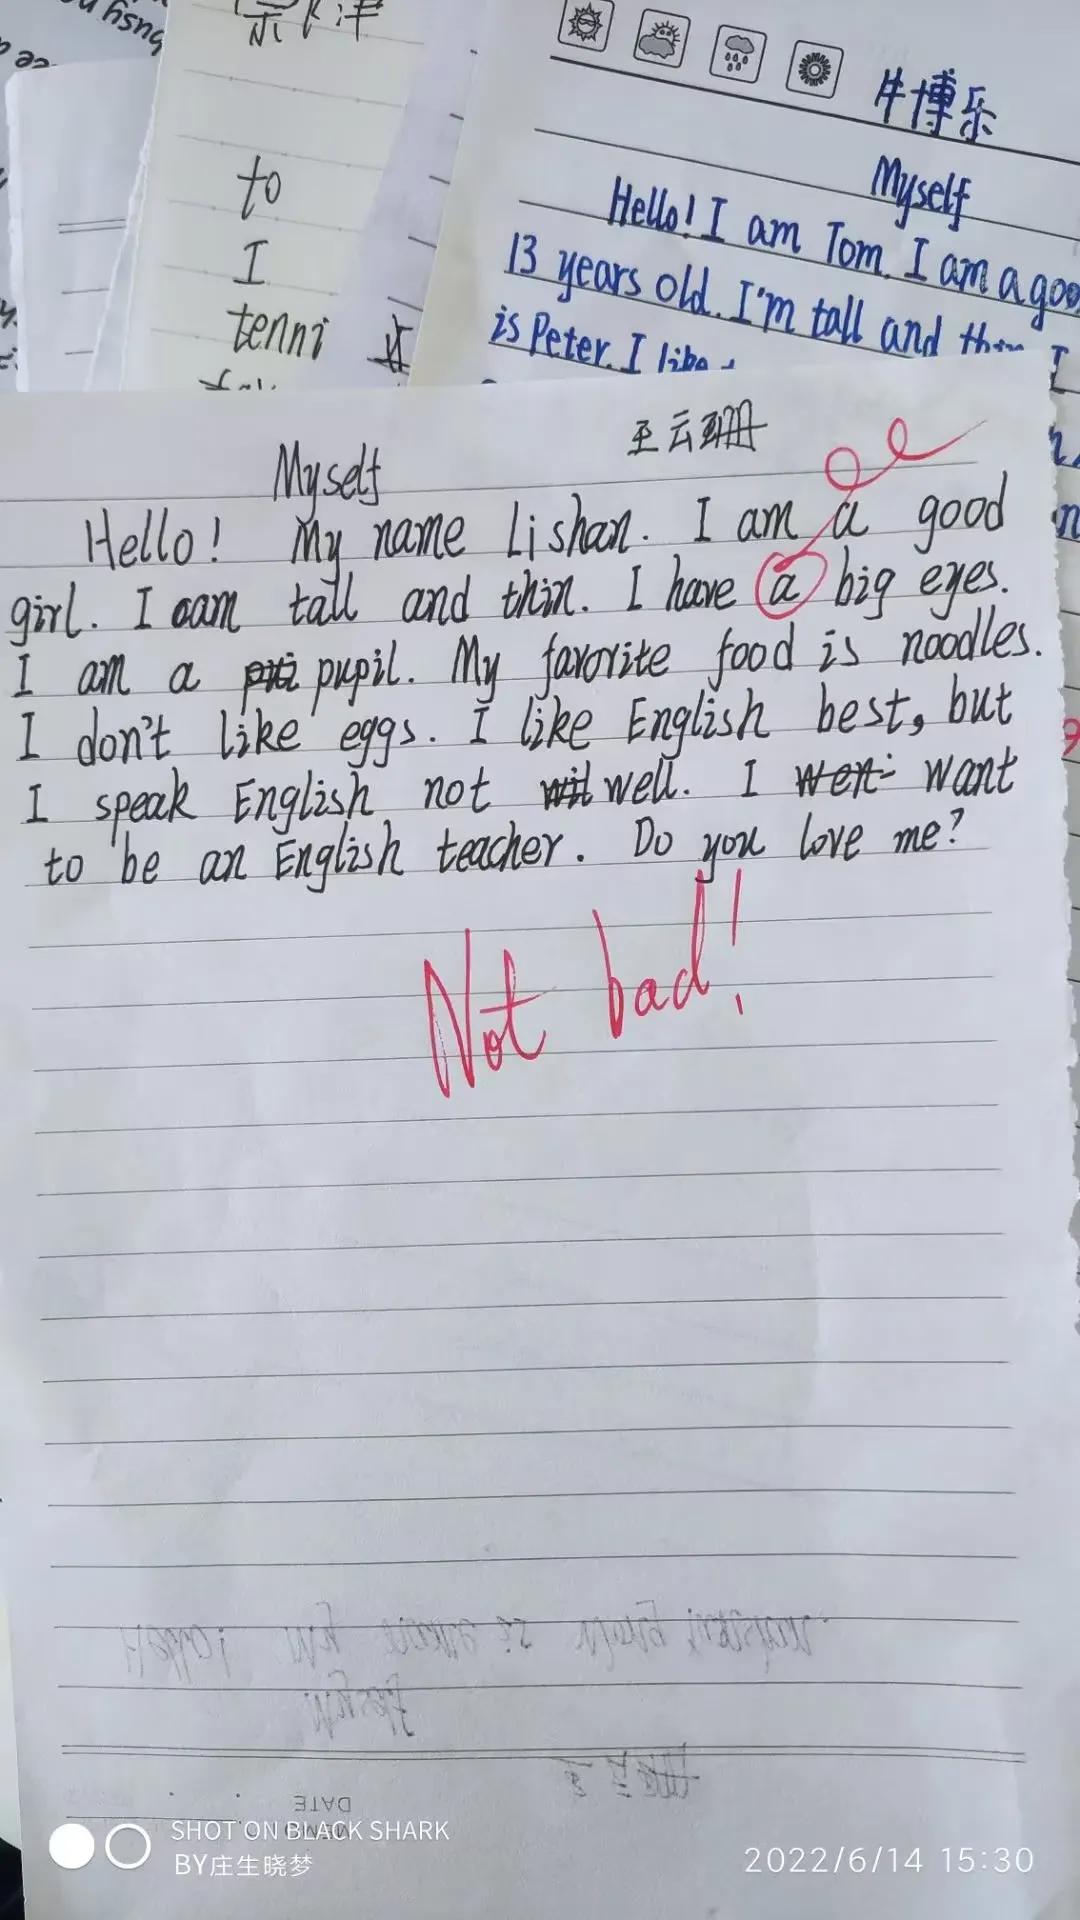 busy
牛博乐
to
Myself
I
Hello! I am Tom. I am a goo
tenni
13 years old. I'm tall and thin I
is Peter. I like
王云珊
Myself
Hello! My name Lishan. I am a good
girl. I am tall and thin. I have a big eyes.
I am a pupil. My favorite food is noodles.
I don't like eggs. I like English best, but
I speak English not well. I want
to be an English teacher. Do you love me?
Not bad!
Hello! my name is
Myself
王云珊
DATE
MEMO NO.
SHOT ON BLACK SHARK
BY庄生晓梦
2022/6/14 15:30